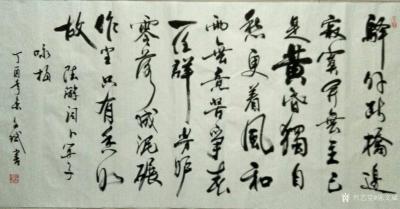 驿外断橋邊
寂寞开無主已
是黄昏獨自
愁更着風和
雨無意苦争春
一任群芳妒
零落成泥碾
作尘只有香如
故 陆游词卜算子
咏梅
丁酉年 书